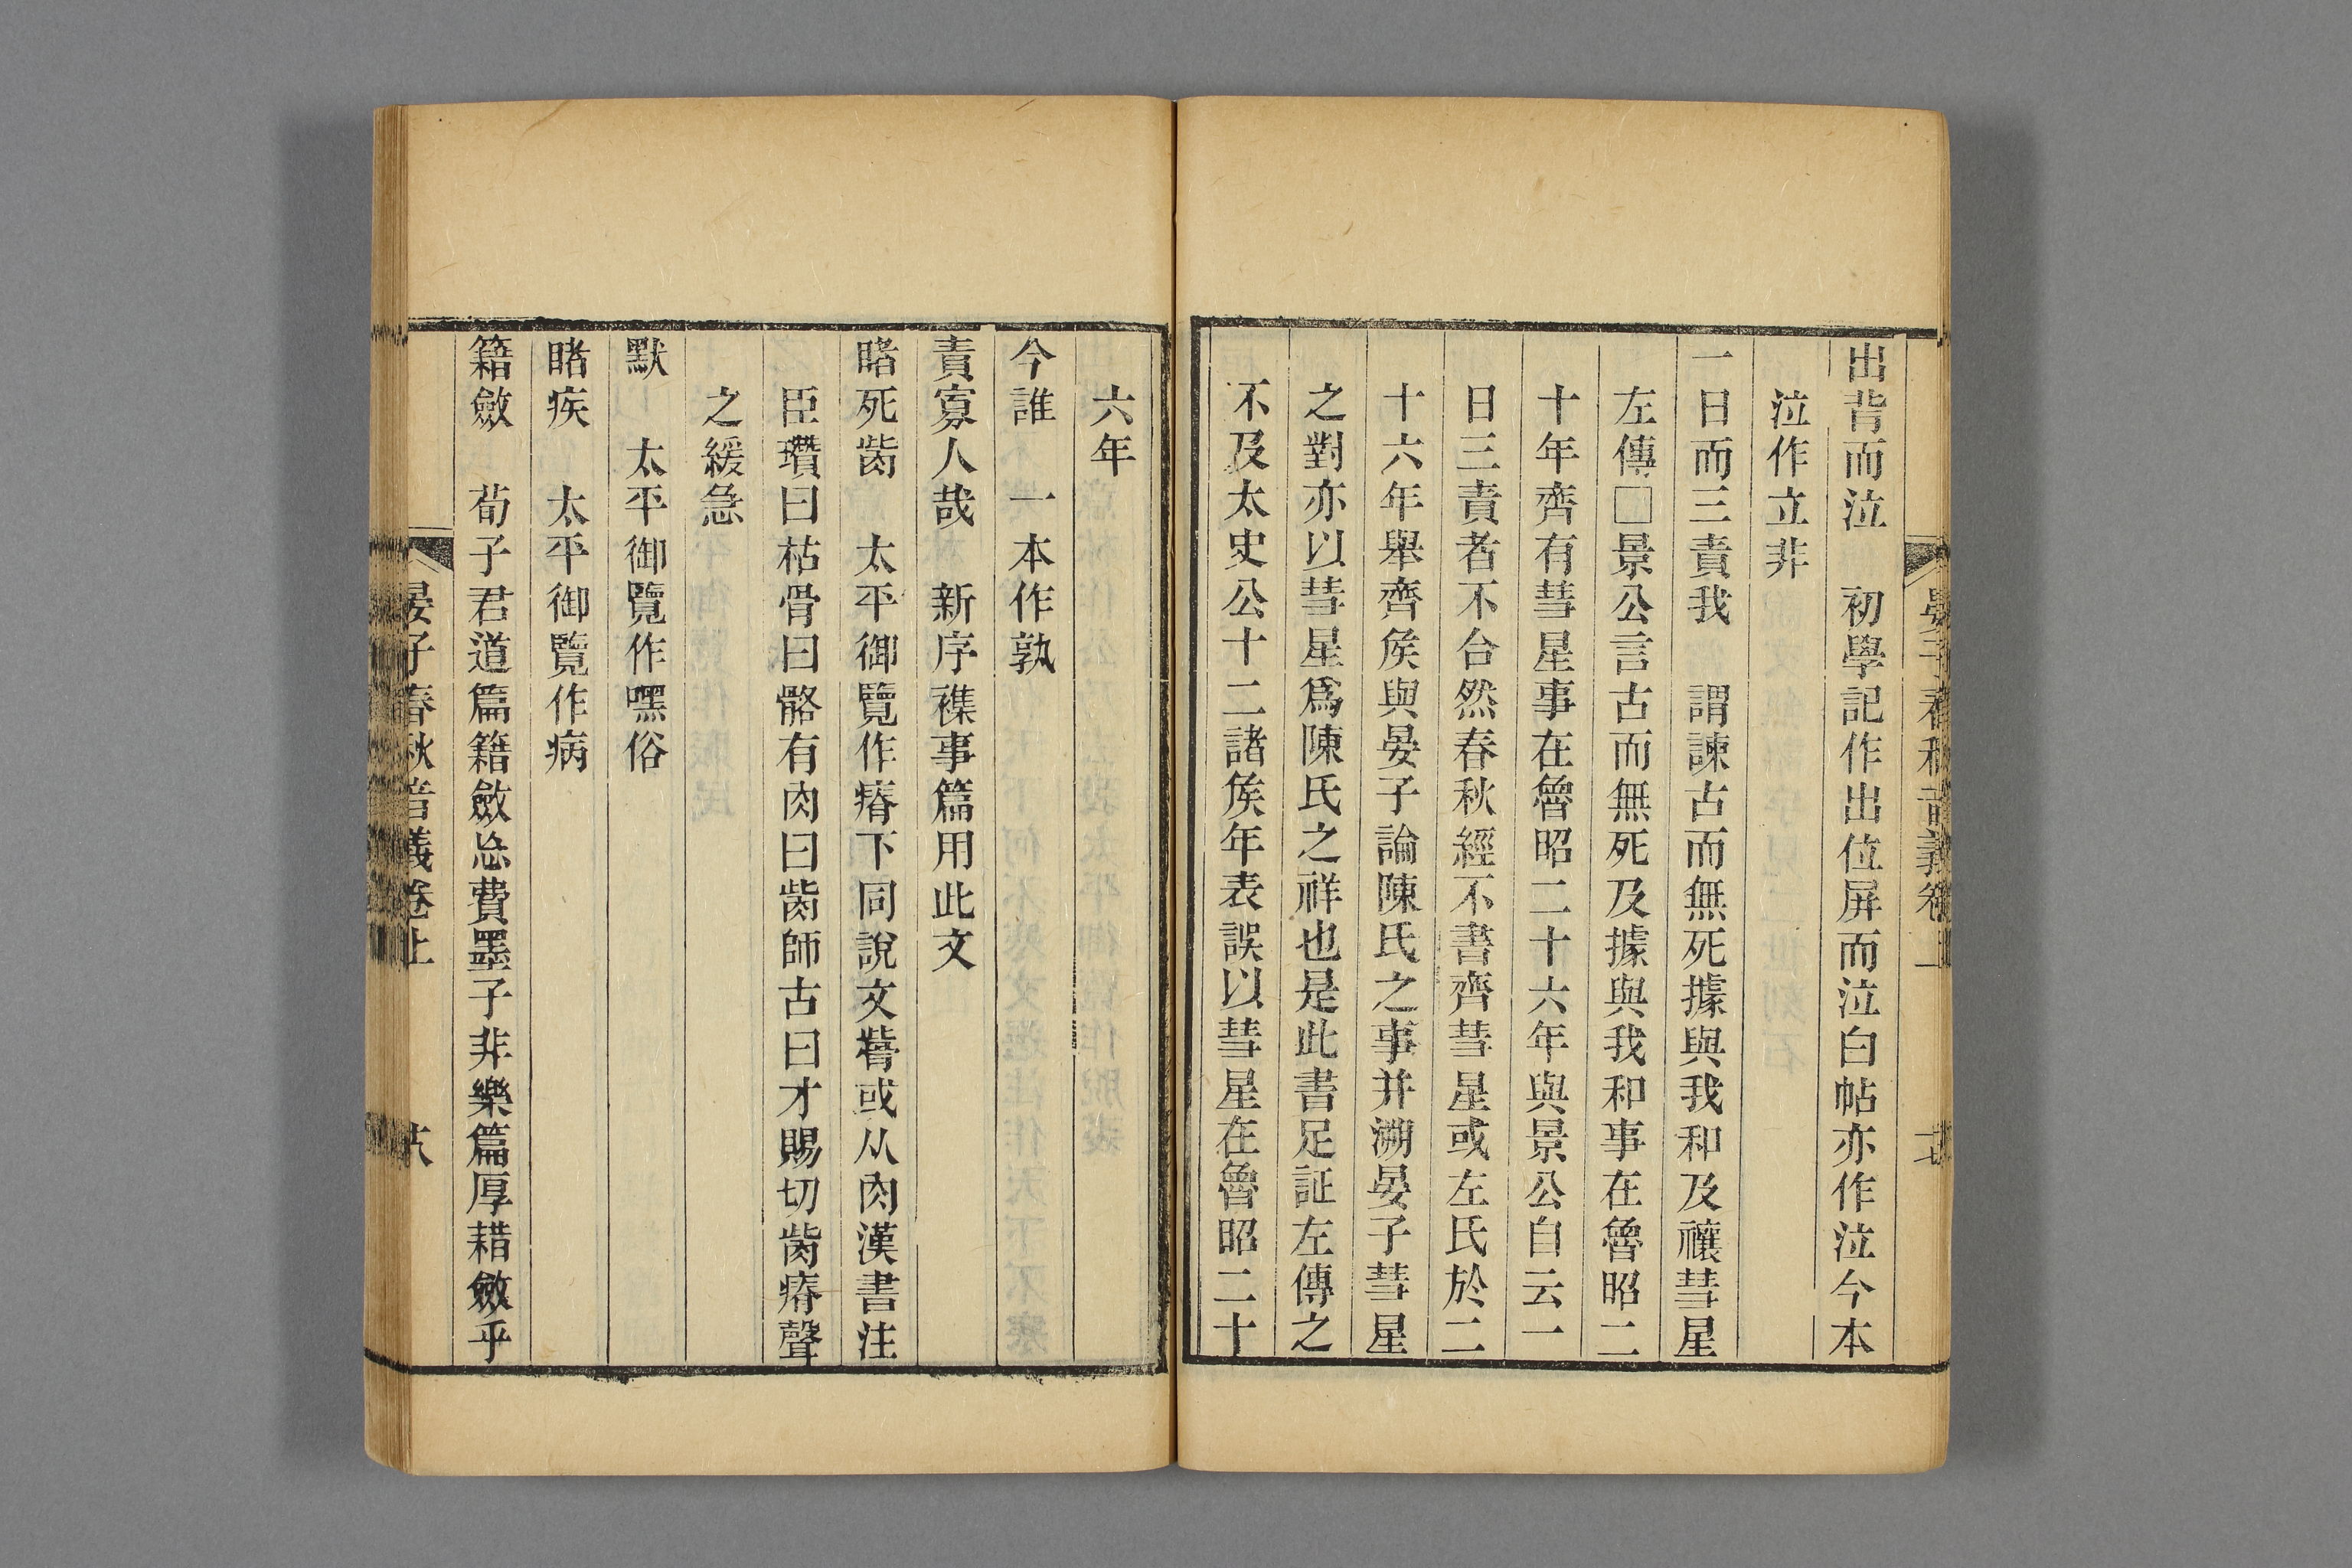 晏子春秋音義卷上
十七
出背而泣　初學記作出位屏而泣白帖亦作泣今本
泣作立非
一日而三責我　謂諫古而無死據與我和及禳彗星
左傳□景公言古而無死及據與我和事在魯昭二
十年齊有彗星事在魯昭二十六年與景公自云一
日三責者不合然春秋經不書齊彗星或左氏於二
十六年舉齊矦與晏子論陳氏之事并溯晏子彗星
之對亦以彗星爲陳氏之祥也是此書足証左傳之
不及太史公十二諸矦年表誤以彗星在魯昭二十
六年
今誰　一本作孰
責寡人哉　新序襍事篇用此文
暏死胔　太平御覽作瘠下同說文骴或从肉漢書注
臣瓚曰枯骨曰骼有肉曰胔師古曰才賜切胔瘠聲
之緩急
默　太平御覽作嘿俗
暏疾　太平御覽作病
籍斂　荀子君道篇籍斂忘費墨子非樂篇厚耤斂乎
晏子春秋音義卷上
十八